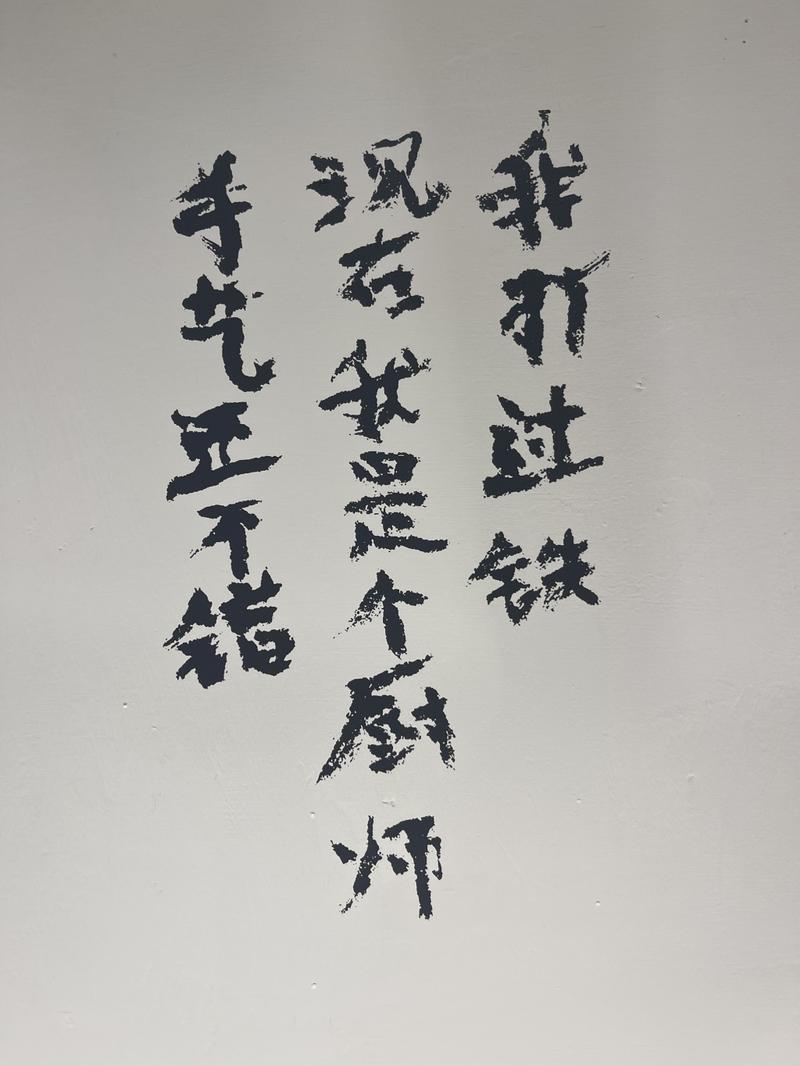 我打过铁
现在我是个厨师
手艺还不错